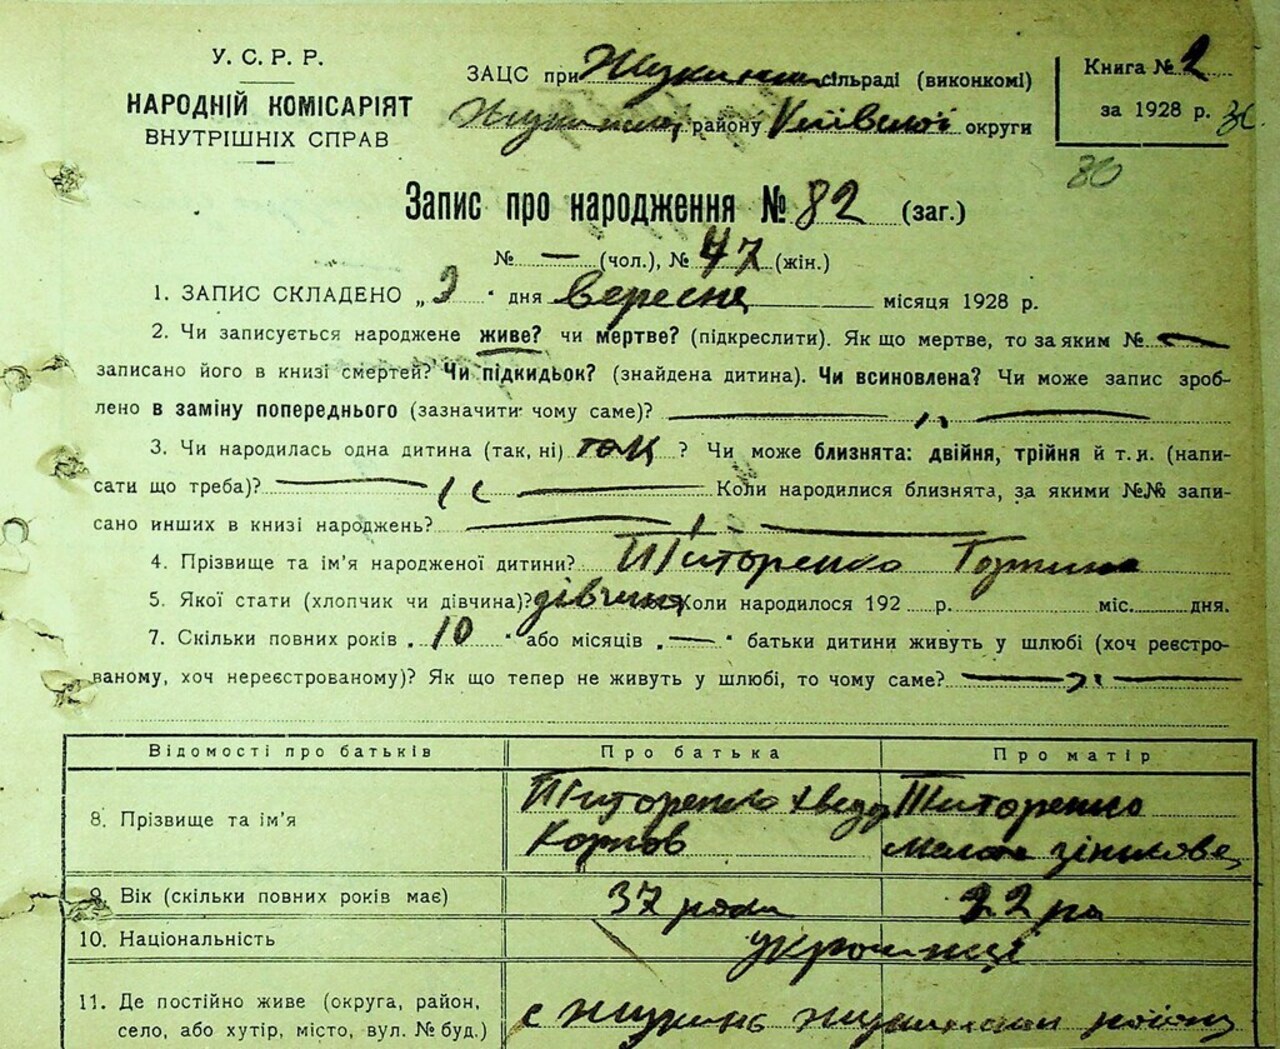 У. С. Р. Р.
НАРОДНІЙ КОМІСАРІЯТ
ВНУТРІШНІХ СПРАВ
ЗАЦС при сільраді (виконкомі)
району Київської округи
Книга № 2
за 1928 р.
30
Запис про народження № 82 (заг.)
№ — (чол.), № 47 (жін.)
1. ЗАПИС СКЛАДЕНО „3“ дня вересня місяця 1928 р.
2. Чи записується народжене живе? чи мертве? (підкреслити). Як що мертве, то за яким № —
записано його в книзі смертей? Чи підкидьок? (знайдена дитина). Чи всиновлена? Чи може запис зроб-
лено в заміну попереднього (зазначити чому саме)? — „ —
3. Чи народилась одна дитина (так, ні) так ? Чи може близнята: двійня, трійня й т. и. (напи-
сати що треба)? — „ — Коли народилися близнята, за якими №№ запи-
сано инших в книзі народжень? — „ —
4. Прізвище та ім'я народженої дитини? Титоренко
5. Якої стати (хлопчик чи дівчина)? дівчина Коли народилося 192 р. міс. дня.
7. Скільки повних років „10“ або місяців „—“ батьки дитини живуть у шлюбі (хоч реєстро-
ваному, хоч нереєстрованому)? Як що тепер не живуть у шлюбі, то чому саме? — „ —
Відомості про батьків Про батька Про матір
8. Прізвище та ім'я Титоренко Титоренко
9. Вік (скільки повних років має) 37 роки 22 ро
10. Національність українці
11. Де постійно живе (округа, район,
село, або хутір, місто, вул. № буд.) с